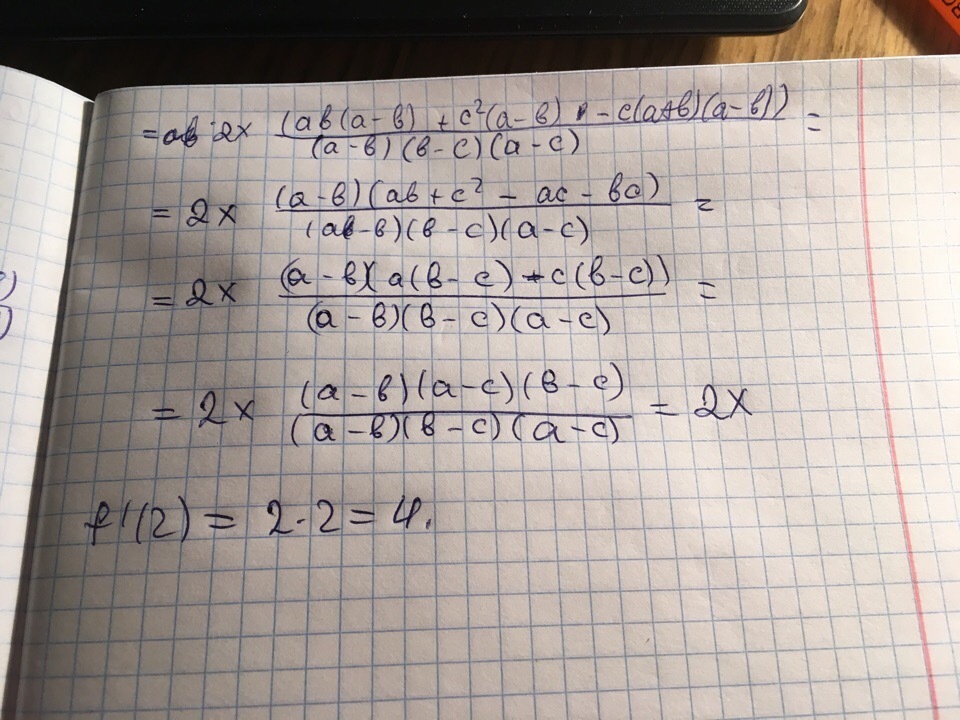 = 2x (ab(a-b) + c²(a-b) - c(a+b)(a-b)) / (a-b)(b-c)(a-c) =
= 2x (a-b)(ab + c² - ac - bc) / (a-b)(b-c)(a-c) =
= 2x (a-b)(a(b-c) - c(b-c)) / (a-b)(b-c)(a-c) =
= 2x (a-b)(a-c)(b-c) / (a-b)(b-c)(a-c) = 2x
f'(2) = 2·2 = 4.